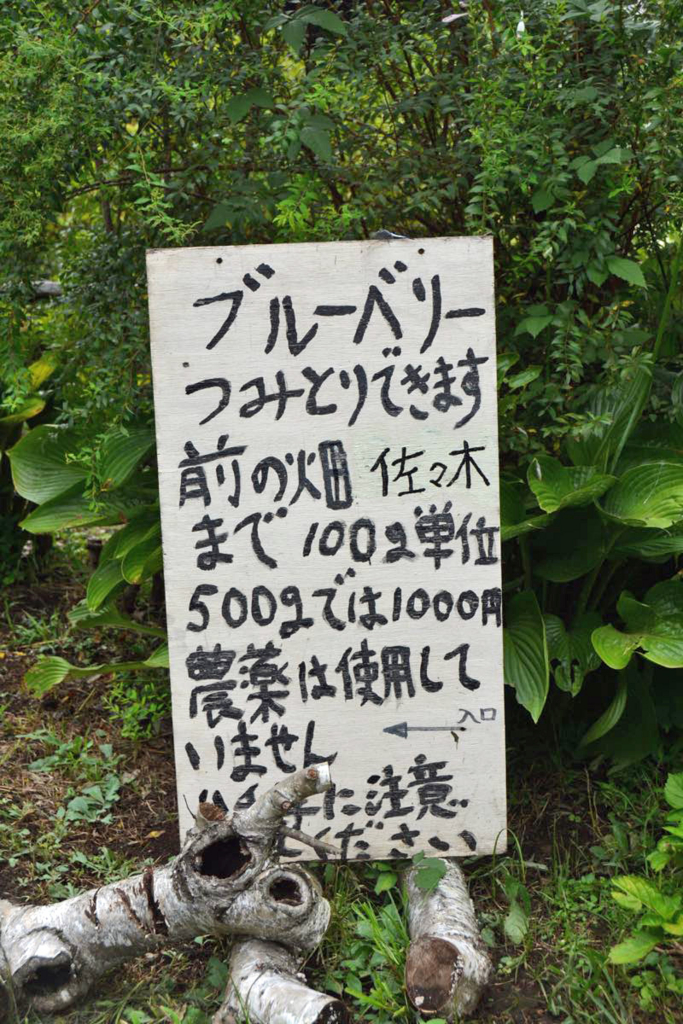 ブルーベリー
つみとりできます
前の畑 佐々木
まで 100g単位
500gでは1000円
農薬は使用して
いません
入口
に注意
ください